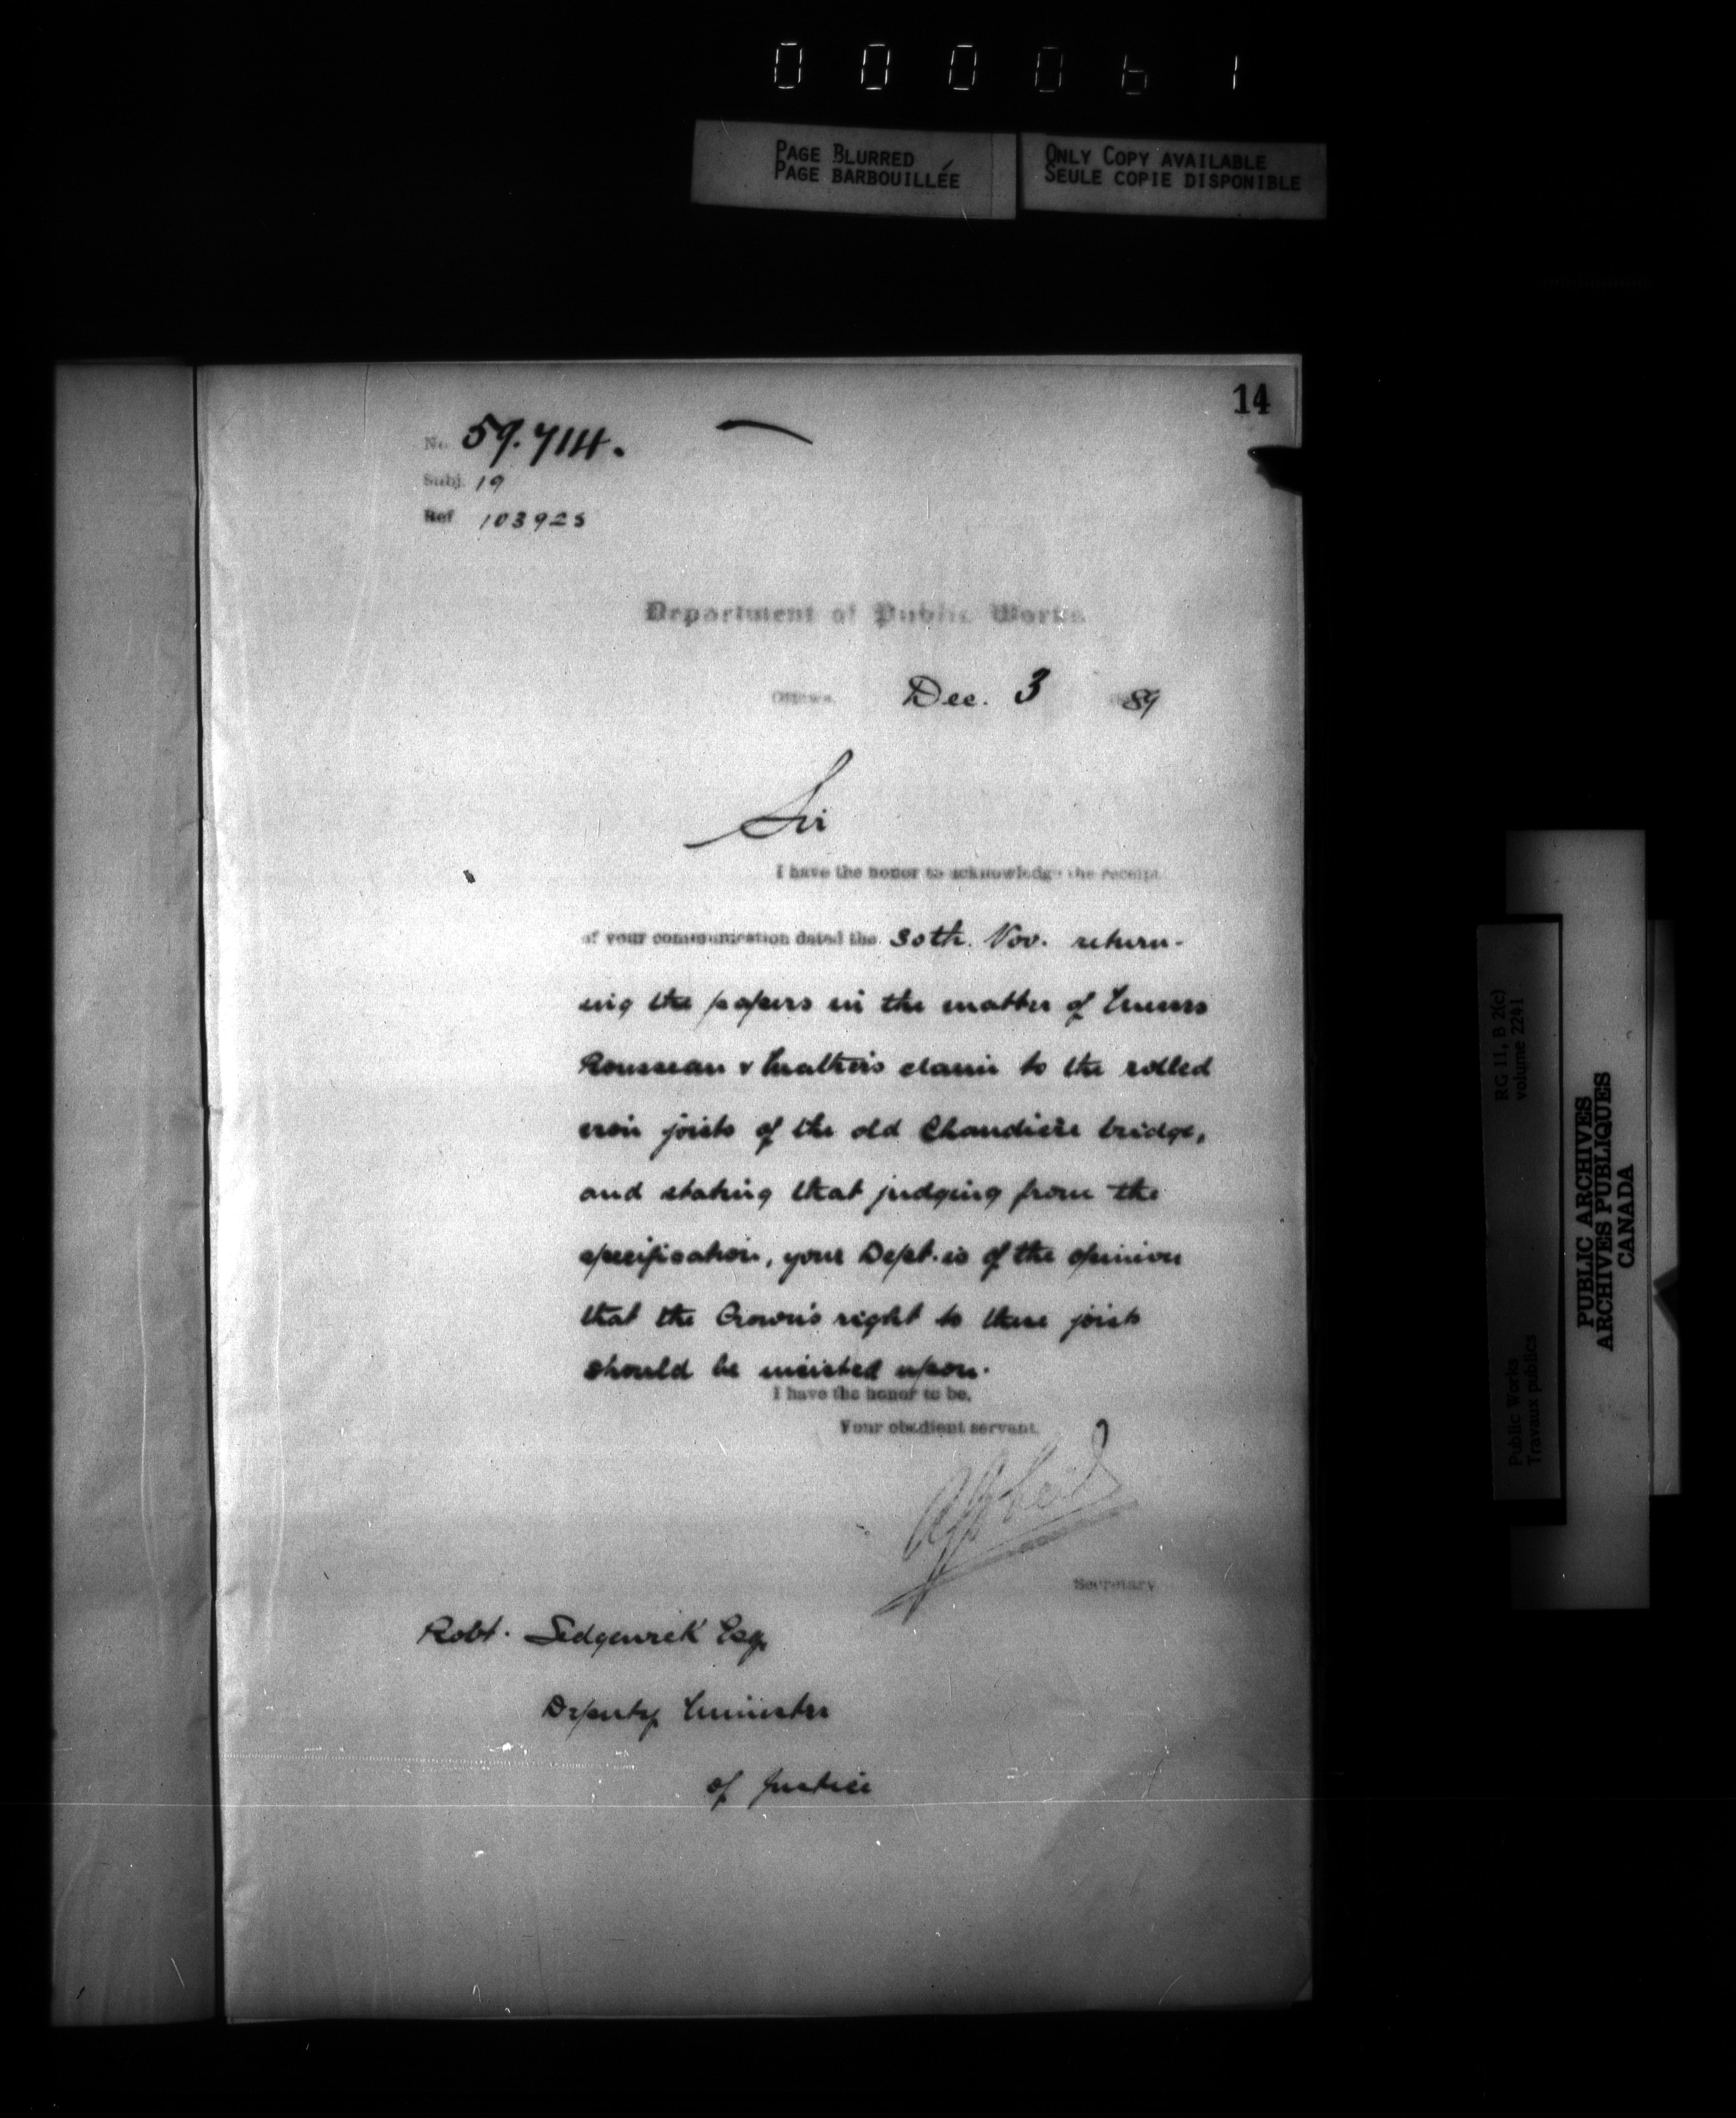 000061
PAGE BLURRED
PAGE BARBOUILLÉE
ONLY COPY AVAILABLE
SEULE COPIE DISPONIBLE
14
No. 59.714.
Subj. 19
Ref 103925
Department of Public Works.
Ottawa, Dec. 3 1889
Sir
I have the honor to acknowledge the receipt
of your communication dated the 30th. Nov. return-
ing the papers in the matter of Messrs
Rousseau & Mather's claim to the rolled
iron joists of the old Chaudière bridge,
and stating that judging from the
specification, your Dept. is of the opinion
that the Crown's right to these joists
should be insisted upon.
I have the honor to be,
Your obedient servant,
Secretary
Robt. Sedgewick Esq.
Deputy Minister
of Justice
RG 11, B 2(c)
volume 2241
Public Works
Travaux publics
PUBLIC ARCHIVES
ARCHIVES PUBLIQUES
CANADA